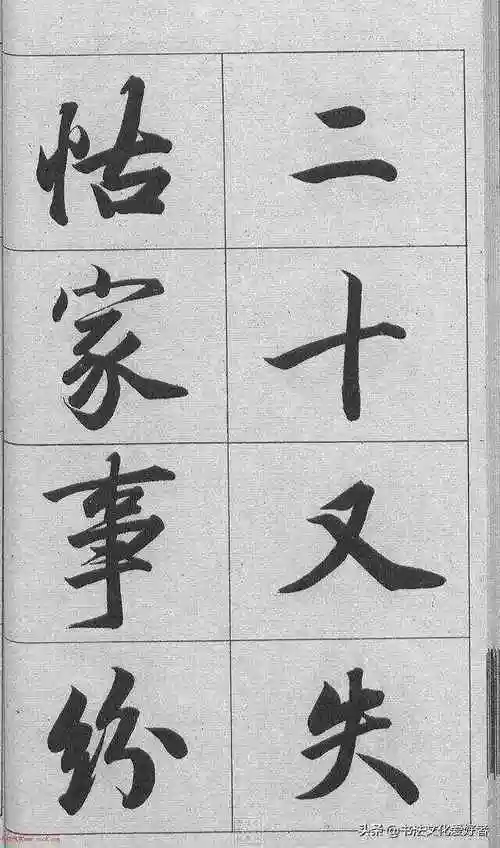 二十又失
怙家事纷
头条@书法文化爱好者